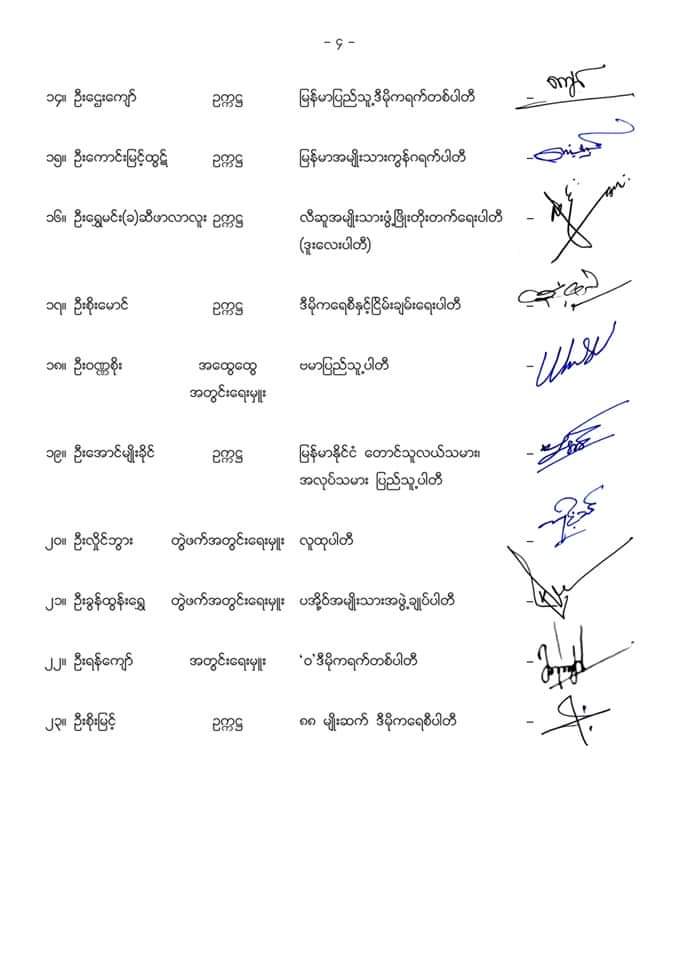 - ၄ -
၁၄။ ဦးဌေးကျော် ဥက္ကဋ္ဌ မြန်မာပြည်သူ့ဒီမိုကရက်တစ်ပါတီ -
၁၅။ ဦးကောင်းမြင့်ထွဋ် ဥက္ကဋ္ဌ မြန်မာအမျိုးသားကွန်ဂရက်ပါတီ -
၁၆။ ဦးရွှေမင်း(ခ)ဆီဖာလာလူး ဥက္ကဋ္ဌ လီဆူအမျိုးသားဖွံ့ဖြိုးတိုးတက်ရေးပါတီ -
(ဒူးလေးပါတီ)
၁၇။ ဦးစိုးမောင် ဥက္ကဋ္ဌ ဒီမိုကရေစီနှင့်ငြိမ်းချမ်းရေးပါတီ -
၁၈။ ဦးဝဏ္ဏစိုး အထွေထွေ ဗမာပြည်သူ့ပါတီ -
အတွင်းရေးမှူး
၁၉။ ဦးအောင်မျိုးခိုင် ဥက္ကဋ္ဌ မြန်မာနိုင်ငံ တောင်သူလယ်သမား၊ -
အလုပ်သမား ပြည်သူ့ပါတီ
၂၀။ ဦးလှိုင်ဘွား တွဲဖက်အတွင်းရေးမှူး လူထုပါတီ -
၂၁။ ဦးခွန်ထွန်းရွှေ တွဲဖက်အတွင်းရေးမှူး ပအိုဝ်အမျိုးသားအဖွဲ့ချုပ်ပါတီ -
၂၂။ ဦးရန်ကျော် အတွင်းရေးမှူး ‘ဝ’ဒီမိုကရက်တစ်ပါတီ -
၂၃။ ဦးစိုးမြင့် ဥက္ကဋ္ဌ ၈၈ မျိုးဆက် ဒီမိုကရေစီပါတီ -